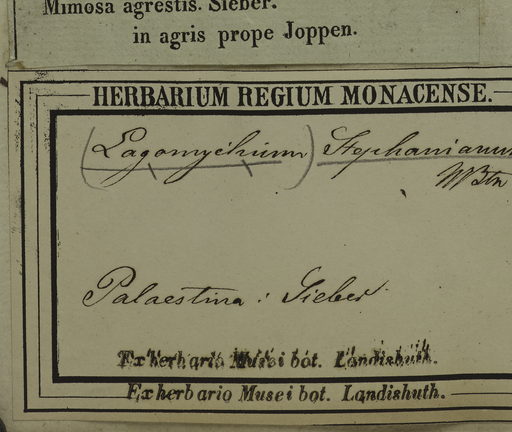 Mimosa agrestis. Sieber.
in agris prope Joppen.
HERBARIUM REGIUM MONACENSE.
(Lagonychium) Stephanianum
MBtn
Palaestina: Sieber
Ex herbario Musei bot. Landishuth.
Ex herbario Musei bot. Landishuth.